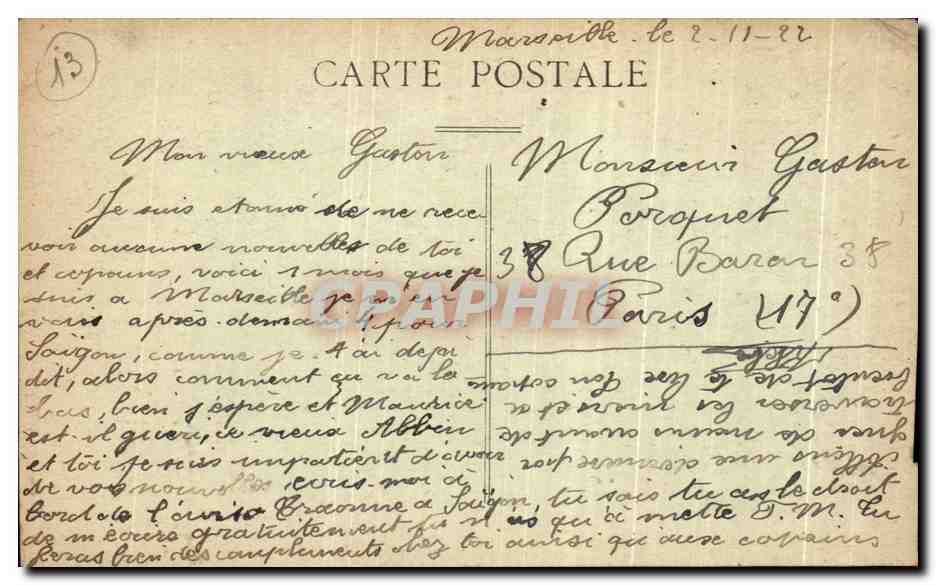 13
Marseille. le 2-11-22
CARTE POSTALE
Mon vieux Gaston
Je suis etonné de ne rece
voir aucune nouvelles de toi
et copains, voici 1 mois que je
suis a Marseille je m'en
vais après-demain 4 pour
Saigon, comme je t'ai deja
dit, alors comment ça va la
bas, bien j'espère et Maurice
est-il gueri, ce vieux
et toi je suis impatient d'avoir
de vos nouvelles, ecris-moi à
bord de l'aviso Craonne a Saïgon, tu sais tu as le droit
de m'écrire gratuitement tu n'as qu'à mettre F. M. Tu
feras bien des compliments chez toi ainsi qu'aux copains
Monsieur Gaston
Porquet
38 Rue Baron 38
Paris (17e)
CPAPHIL
une dernière
de mains avant de
traverser les mers et a
bientot de te lire Ton copain